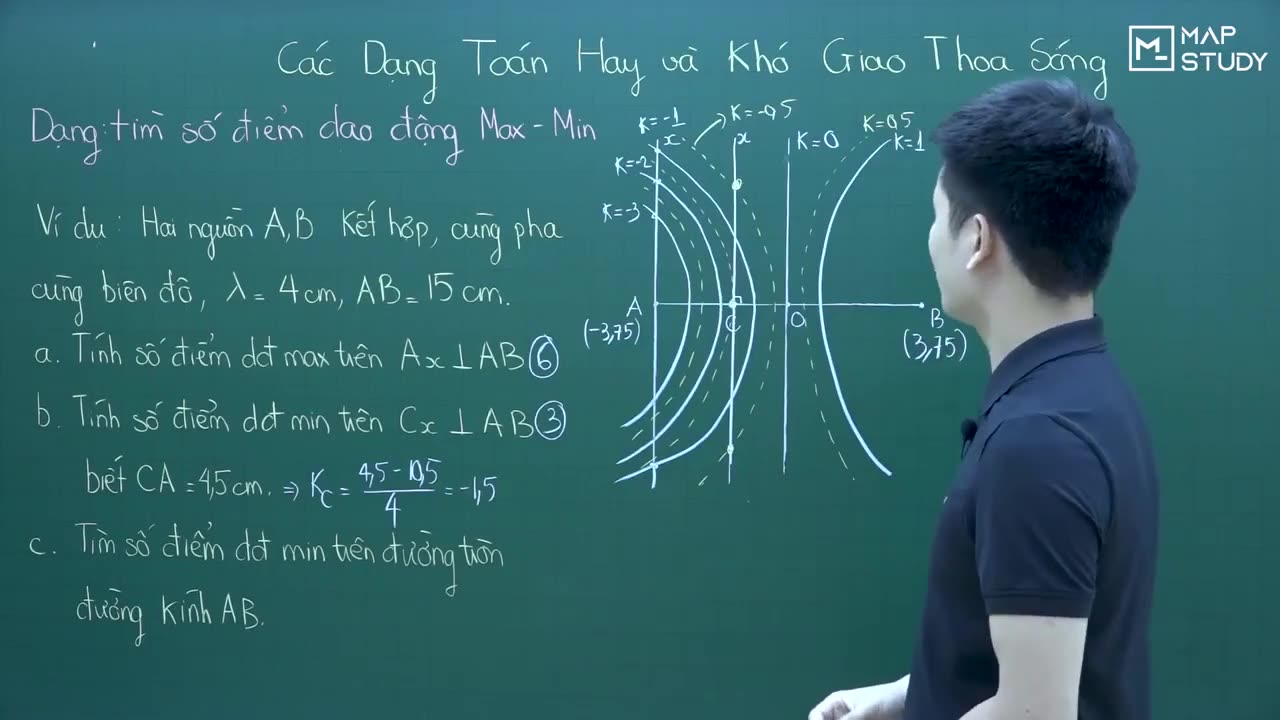 Các Dạng Toán Hay và Khó Giao Thoa Sóng
MAP
STUDY
Dạng: tìm số điểm dao động Max - Min
Ví dụ: Hai nguồn A,B kết hợp, cùng pha
cùng biên độ, λ = 4cm, AB = 15cm.
a. Tính số điểm dđ max trên Ax ⊥ AB ⑥
b. Tính số điểm dđ min trên Cx ⊥ AB ③
biết CA = 4,5cm. ⇒ K_C = (4,5 - 10,5)/4 = -1,5
c. Tìm số điểm dđ min trên đường tròn
đường kính AB.
K=-1
K=-0,5
x
x
K=0
K=0,5
K=1
K=-2
K=-3
A
(-3,75)
C
O
B
(3,75)